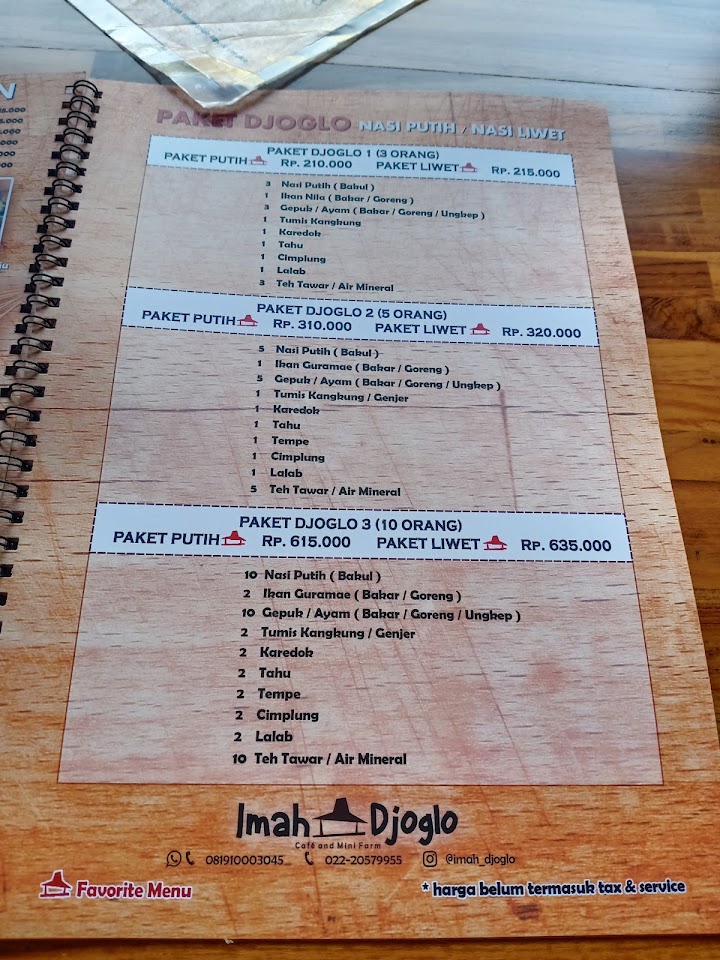 N
PAKET DJOGLO NASI PUTIH / NASI LIWET
PAKET DJOGLO 1 (3 ORANG)
PAKET PUTIH Rp. 210.000 PAKET LIWET Rp. 215.000
3 Nasi Putih ( Bakul )
1 Ikan Nila ( Bakar / Goreng )
3 Gepuk / Ayam ( Bakar / Goreng / Ungkep )
1 Tumis Kangkung
1 Karedok
1 Tahu
1 Cimplung
1 Lalab
3 Teh Tawar / Air Mineral
PAKET DJOGLO 2 (5 ORANG)
PAKET PUTIH Rp. 310.000 PAKET LIWET Rp. 320.000
5 Nasi Putih ( Bakul )
1 Ikan Guramae ( Bakar / Goreng )
5 Gepuk / Ayam ( Bakar / Goreng / Ungkep )
1 Tumis Kangkung / Genjer
1 Karedok
1 Tahu
1 Tempe
1 Cimplung
1 Lalab
5 Teh Tawar / Air Mineral
PAKET DJOGLO 3 (10 ORANG)
PAKET PUTIH Rp. 615.000 PAKET LIWET Rp. 635.000
10 Nasi Putih ( Bakul )
2 Ikan Guramae ( Bakar / Goreng )
10 Gepuk / Ayam ( Bakar / Goreng / Ungkep )
2 Tumis Kangkung / Genjer
2 Karedok
2 Tahu
2 Tempe
2 Cimplung
2 Lalab
10 Teh Tawar / Air Mineral
Imah Djoglo
Café and Mini Farm
081910003045 022-20579955 @imah_djoglo
Favorite Menu * harga belum termasuk tax & service